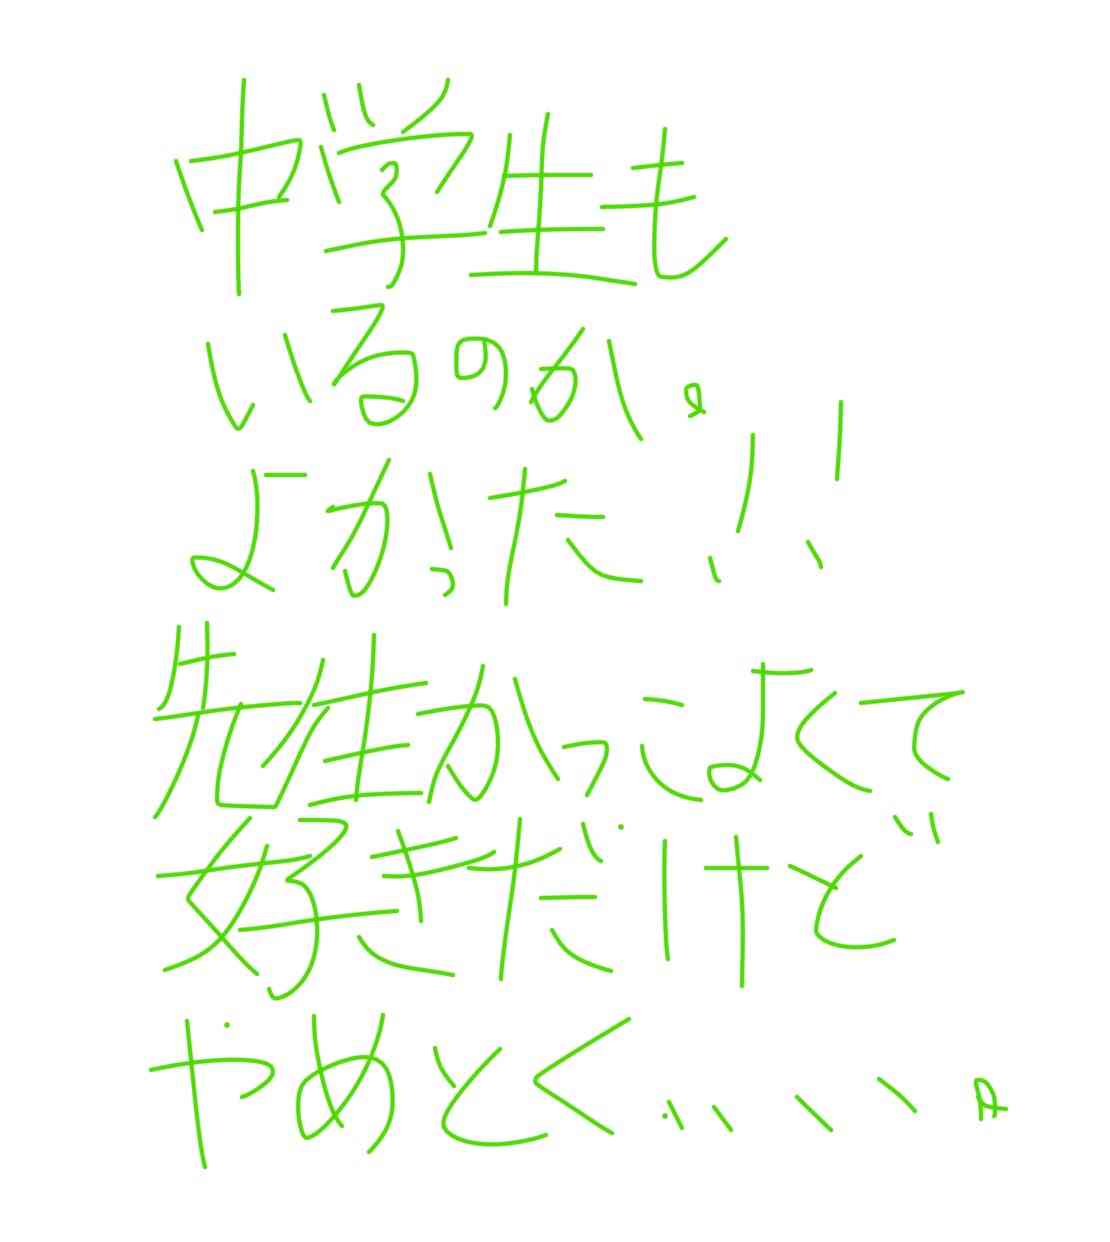 中学生も
いるのか。
よかった!!
先生かっこよくて
好きだけど
やめとく、、、、、。